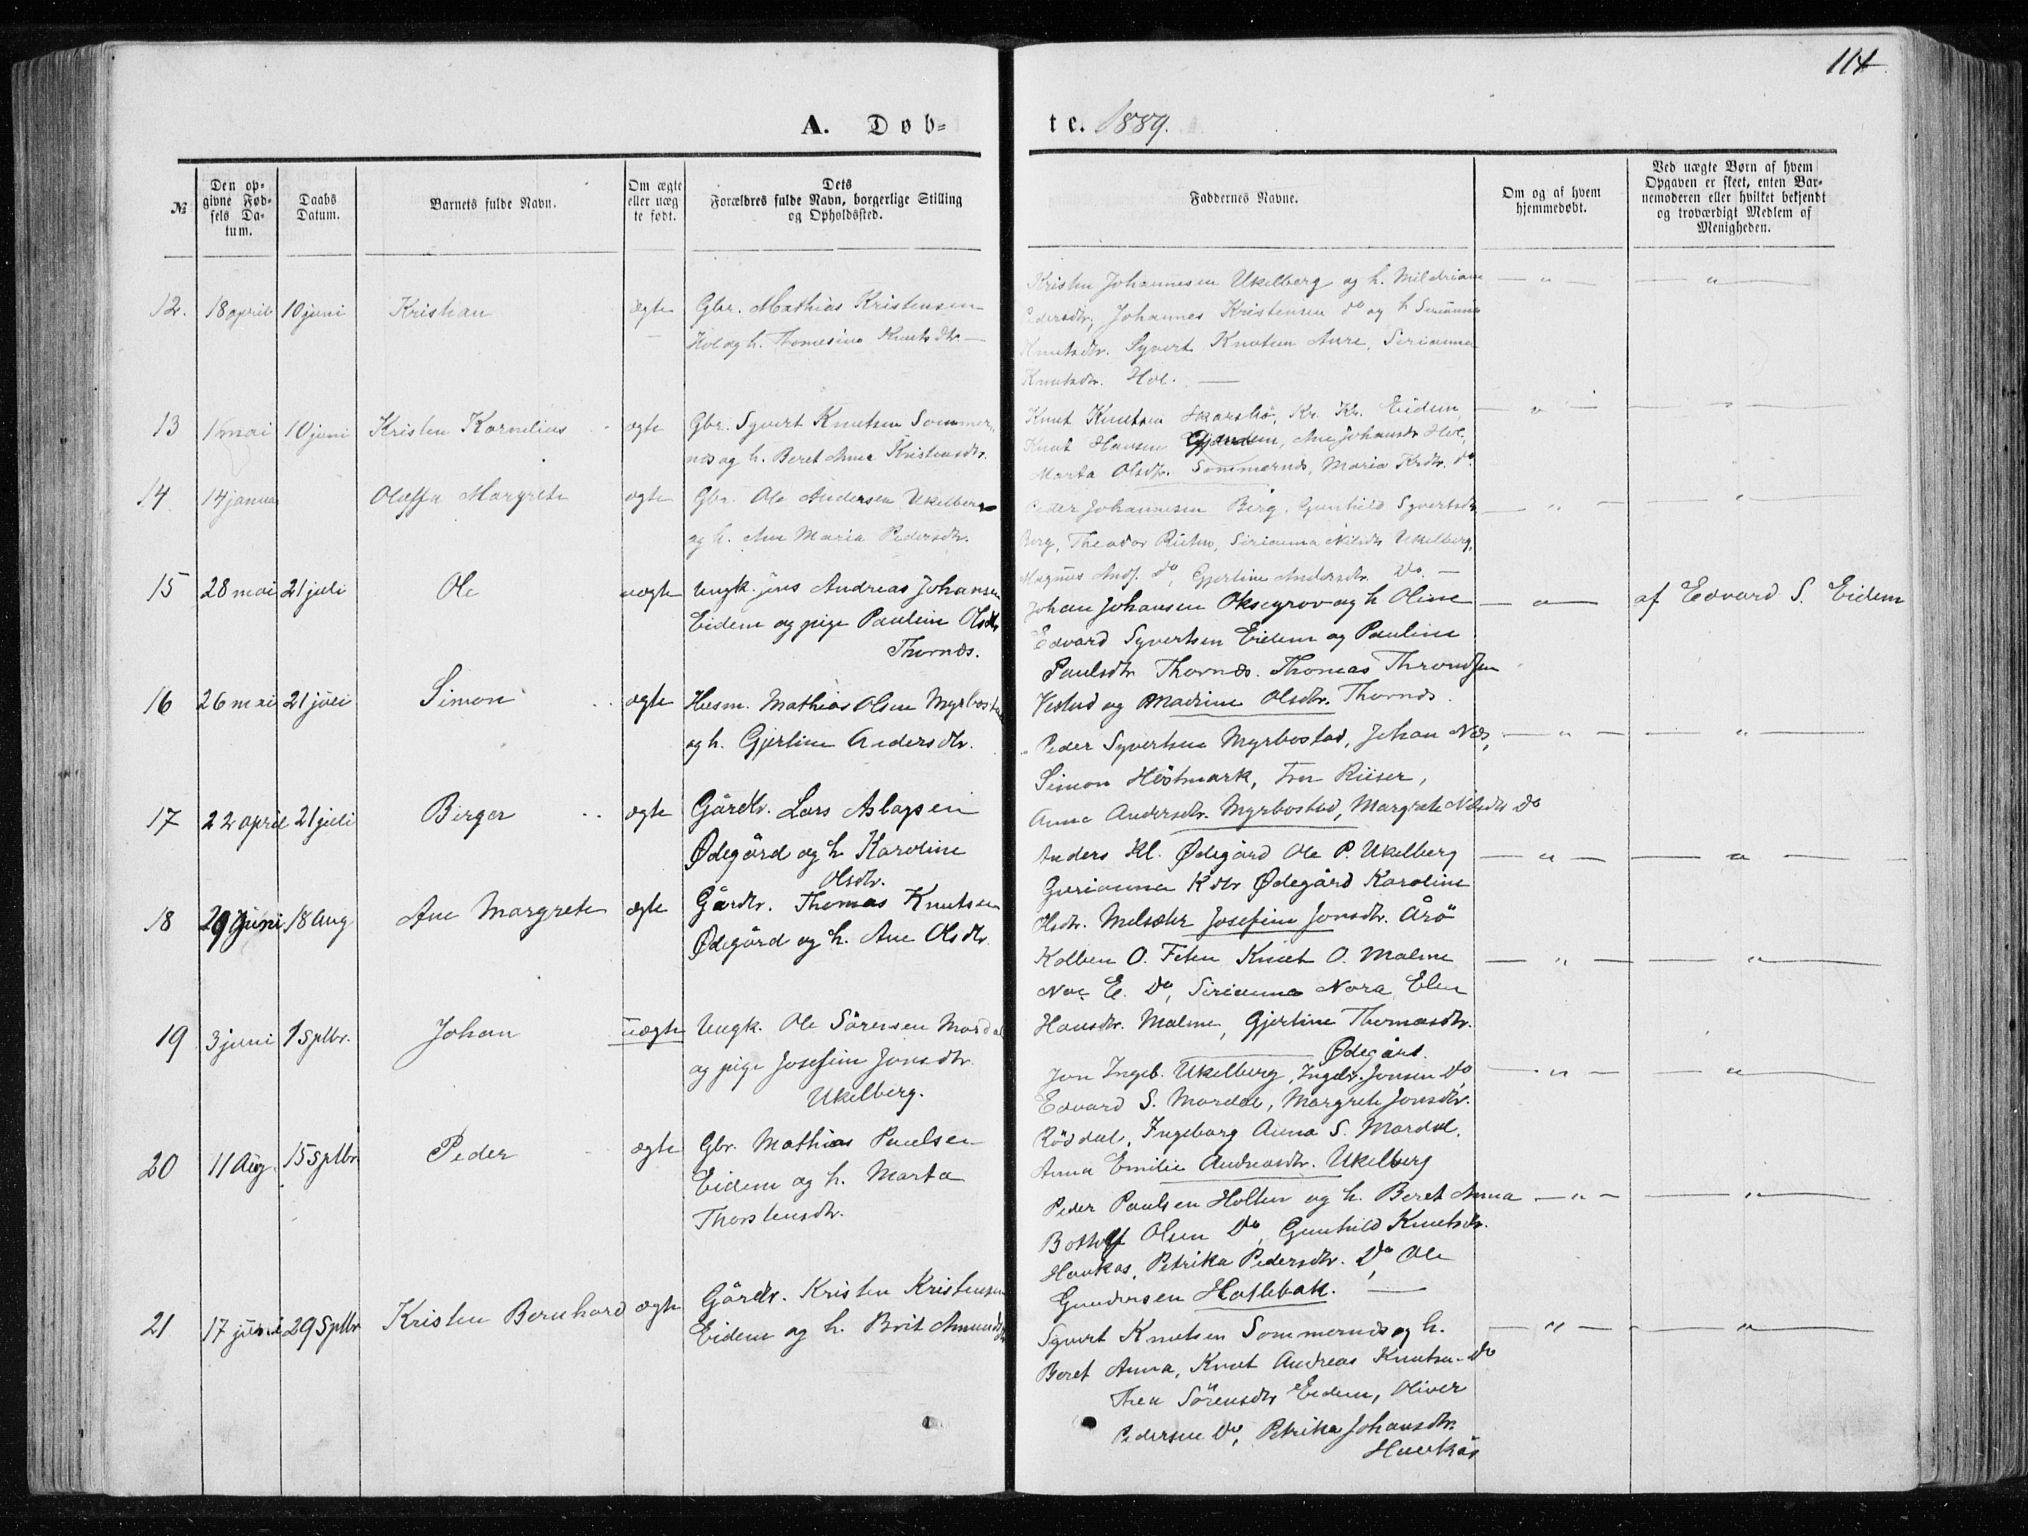 114
A. Døb-
te. 1889.
№
Den opgivne Fødsels Datum.
Daabs Datum.
Barnets fulde Navn.
Om ægte eller uægte født.
Dets Forældres fulde Navn, borgerlige Stilling og Opholdssted.
Faddernes Navne.
Om og af hvem hjemmedøbt.
Ved uægte Børn af hvem Opgaven er skeet, enten Barnemoderen eller hvilket bekjendt og troværdigt Medlem af Menigheden.
12. 18 april 10 juni Kristian ægte Gbr. Mathias Kristensen
Hol og h. Thomesine Knutsdtr.
Kristen Johannesen Ukelberg og h. Mildriane — " — — " —
Pedersdtr, Johannes Kristensen do og h Serianna
Knutsdtr. Syvert Knutsen Aure, Serianna
Knutsdtr. Hol. —
13 1 mai 10 juni Kristen Kornelius ægte Gbr. Syvert Knutsen Sommer-
næs og h. Beret Anna Kristensdtr.
Knut Knutsen Skarshö, Kr. Kr. Eidem,
Knut Hansen Gjendem, Ane Johansdr Hol,
Marta Olsdtr. Sommernæs, Maria Krdtr. do
14 14 januar Oluffa Margrete ægte Gbr. Ole Andersen Ukelberg
og h. Ane Maria Pedersdtr.
Peder Johannesen Berg, Gunhild Syvertsdtr
Berg, Theodor Riiser, Serianna Nilsdtr Ukelberg,
Magnus Andf. do, Gjertine Andersdtr. Do. —
15 28 mai 21 juli Ole uægte Ungk. Jens Andreas Johansen
Eidem og pige Pauline Olsdtr
Thornæs.
Johan Johansen Oksegrov og h Oline — " — af Edvard S. Eidem
Edvard Syvertsen Eidem og Pauline
Paulsdtr Thornæs. Thomas Throndsen
Vestad og Madrine Olsdtr. Thornæs.
16 26 mai 21 juli Simon ægte Husm. Mathias Olsen Myrbostad
og h. Gjertine Andersdtr.
Peder Syvertsen Myrbostad, Johan Næs, — " — — " —
Simon Höstmark, Frøk Riiser,
Anna Andersdtr. Myrbostad, Margrete Nilsdtr Do
17 22 april 21 juli Birger ægte Gårdbr. Lars Aslagsen
Ødegård og h Karoline
Olsdtr.
Anders Kl. Ødegård Ole P. Ukelberg — " — — " —
Gurianna Kdtr Ødegård Karoline
Olsdtr. Melsæter Josefine Jonsdtr. Årö
18 29 juni 18 Aug Ane Margrete ægte Gårdbr. Thomas Knutsen
Ødegård og h. Ane Olsdtr.
Kolben O. Feten Knut O. Malme — " — — " —
Noe E. Do, Serianna Nora, Elen
Hansdtr. Malme, Gjertine Thomasdtr.
Ødegård.
19 3 juni 1 sptbr. Johan uægte Ungk. Ole Sörensen Mordal
og pige Josefine Jonsdtr.
Ukelberg.
Jon Ingeb. Ukelberg, Ingebr. Jonsen Do — " — — " —
Edvard S. Mordal, Margrete Jonsdtr.
Röddal, Ingeborg Anna S. Mordal,
Anna Emilie Andreasdtr. Ukelberg
20 11 Aug. 15 Sptbr Peder ægte Gbr. Mathias Paulsen
Eidem og h. Marta
Thorstensdtr.
Peder Paulsen Holten og h. Beret Anna — " — — " —
Botholf Olsen Do, Gunhild Knutsdtr.
Haukås, Petrika Pedersdtr. Do, Ole
Gundersen Hatlebak. —
21 17 juni 29 Sptbr Kristen Bernhard ægte Gårdbr. Kristen Kristensen
Eidem og h. Brit Amundsdtr
Syvert Knutsen Sommernæs og h. — " — — " —
Beret Anna, Knut Andreas Knutsen Do
Thea Sörensdtr Eidem, Oliver
Pedersen Do, Petrika Johansdtr.
Haukås